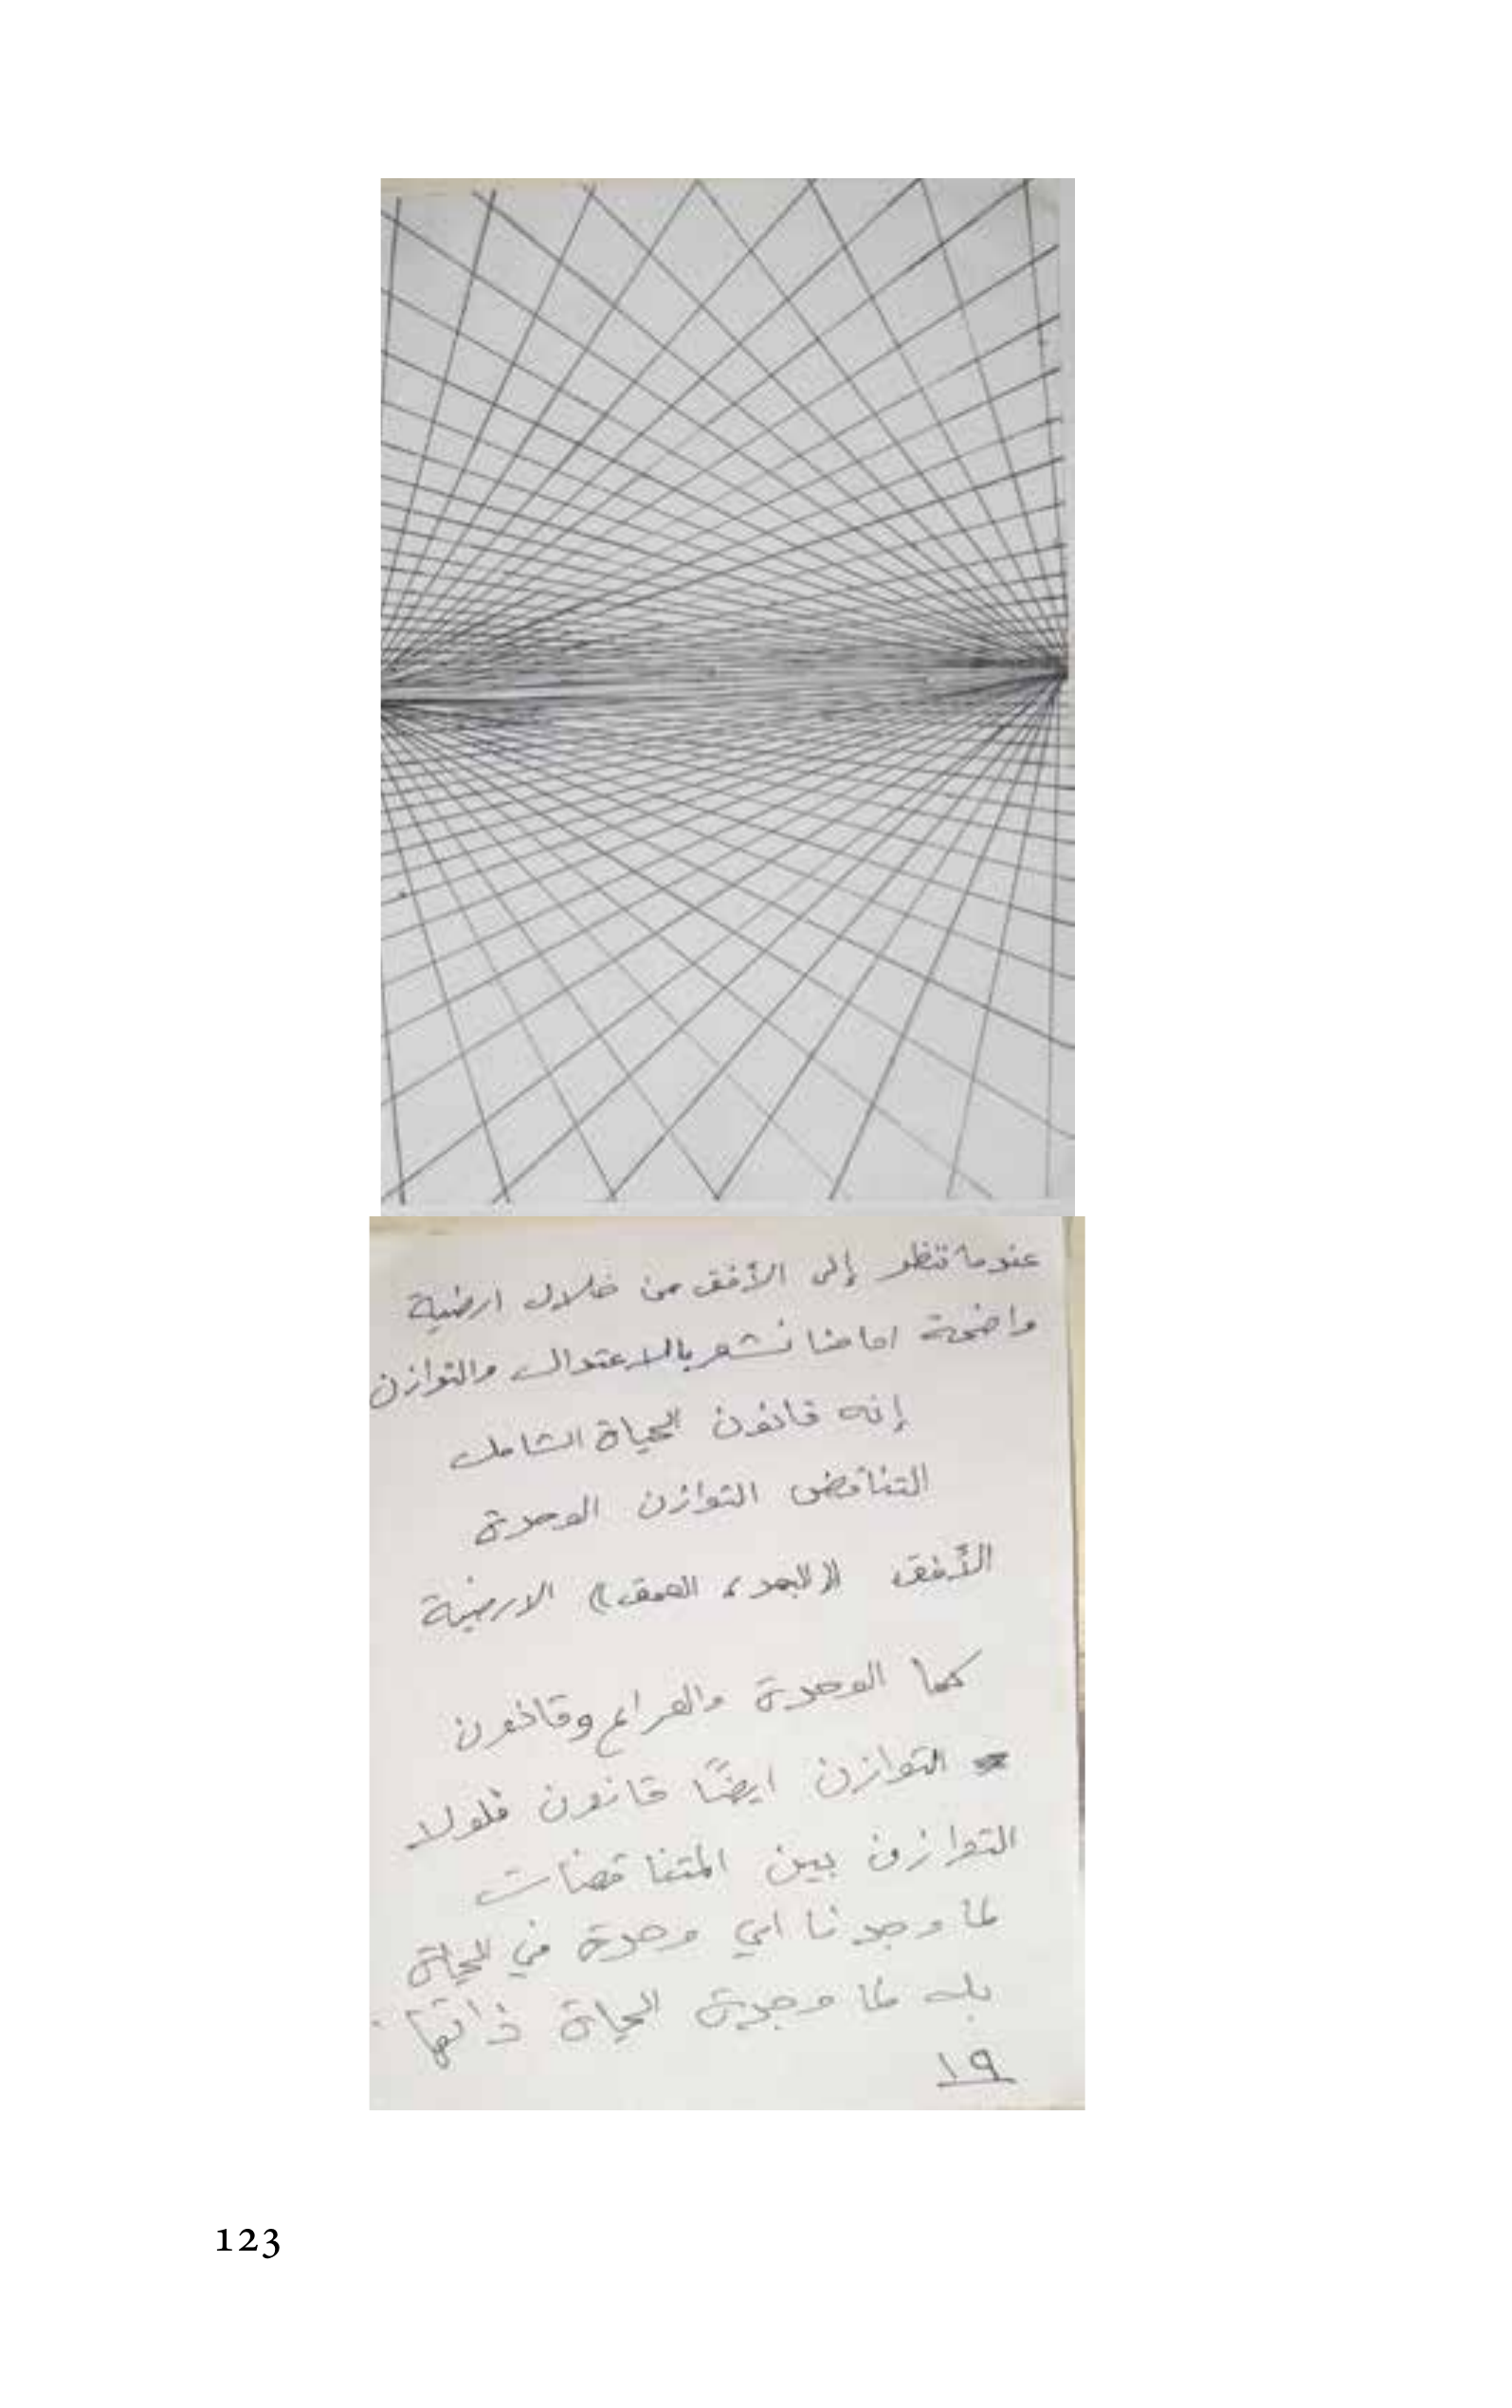 عندما تنظر إلى الأفق من خلال ارضية
واضحة امامنا نشعر بالاعتدال والتوازن
إنه قانون الحياة الشامل
التناقض التوازن الوحدة
الأفق ((البعد، العمق)) الارضية
كما الوحدة والصراع وقانون
التوازن ايضًا قانون فلولا
التوازن بين المتناقضات
لما وجدنا اي وحدة في الحياة
بل لما وجدة الحياة ذاتها.
١٩
123